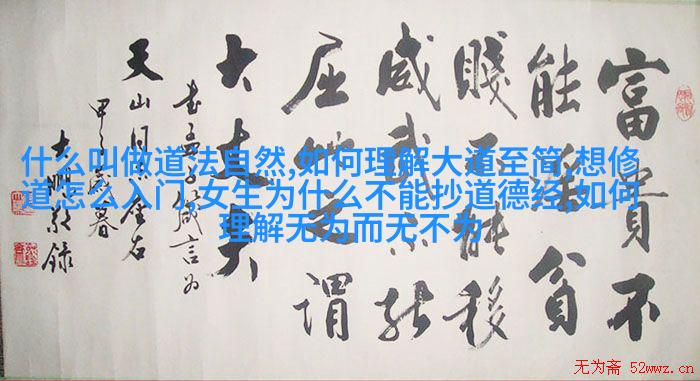 富貴不
能淫貧
賤不能移
威武不能
屈此之謂
大丈夫
書孟子箴言为
天山
什么叫做道法自然,如何理解大道至简,想修
道怎么入门,女生为什么不能抄道德经,如何
理解无为而无不为
无为斋 52wwz.cn